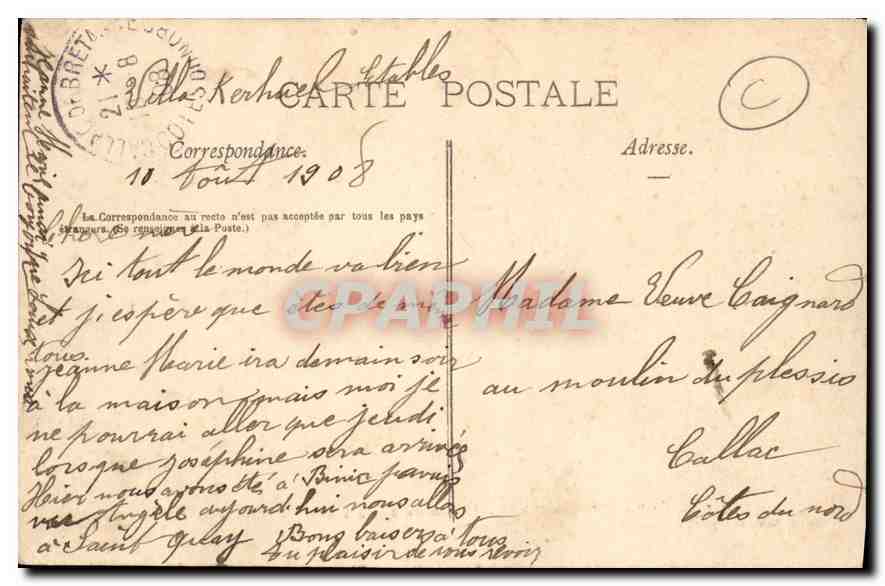 Villa Kerhuel Etables
CARTE POSTALE
C
Correspondance.
Adresse.
10 Août 1908
La Correspondance au recto n'est pas acceptée par tous les pays
étrangers. (Se renseigner à la Poste.)
Ici tout le monde va bien
et j'espère que êtes de même
tous.
Jeanne Marie ira demain soir
à la maison mais moi je
ne pourrai aller que jeudi
lorsque Joséphine sera arrivée
Hier nous avons été à Binic
Angèle aujourd'hui nous allons
à Saint Quay
Bons baisers à tous
Au plaisir de vous revoir
Madame Veuve Caignard
au moulin du plessis
Callac
Côtes du nord
CPARPHIL